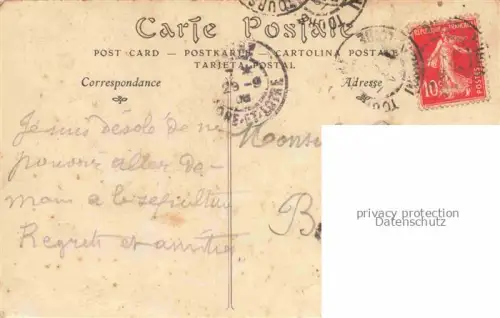 Carte Postale
POST CARD — POSTKARTE — CARTOLINA POSTALE
TARJETA POSTAL
Correspondance
Adresse
Je suis désolé de ne
pouvoir aller de-
main à la sépulture
Regrets et amitiés
Monsieur
B
TOURS
10
privacy protection
Datenschutz